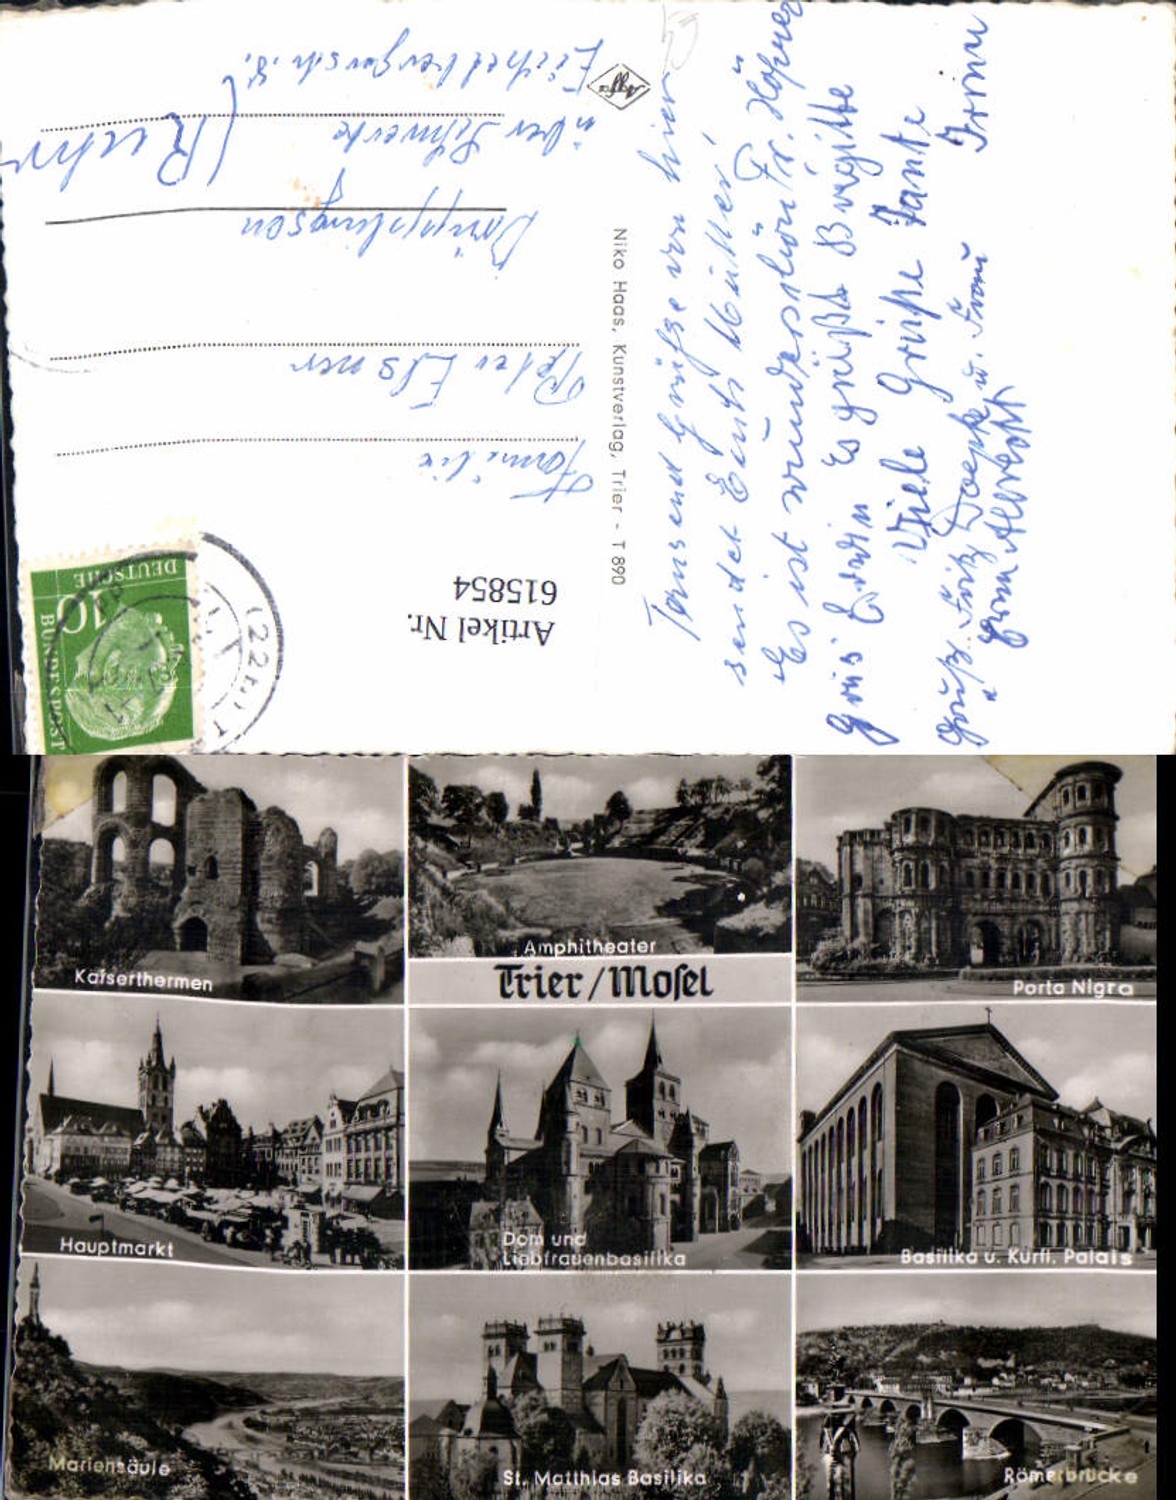 Tausend Grüße von hier
sendet Euch Mutter,
Es ist wunderschön Fr. Höfner
Gruß Erwin Es grüßt Brigitte
Viele Grüße Tante Irmi
Gruß. Fritz u. Frau
Frau Albrecht
Niko Haas, Kunstverlag, Trier - T 890
Agfa
Artikel Nr.
615854
DEUTSCHE
BUNDESPOST
10
(22b) T
Familie
Peter Elsner
über Schwerte
(Ruhr
Kaiserthermen
Amphitheater
Porta Nigra
Trier/Mosel
Hauptmarkt
Dom und
Liebfrauenbasilika
Basilika u. Kurfl. Palais
Mariensäule
St. Matthias Basilika
Römerbrücke